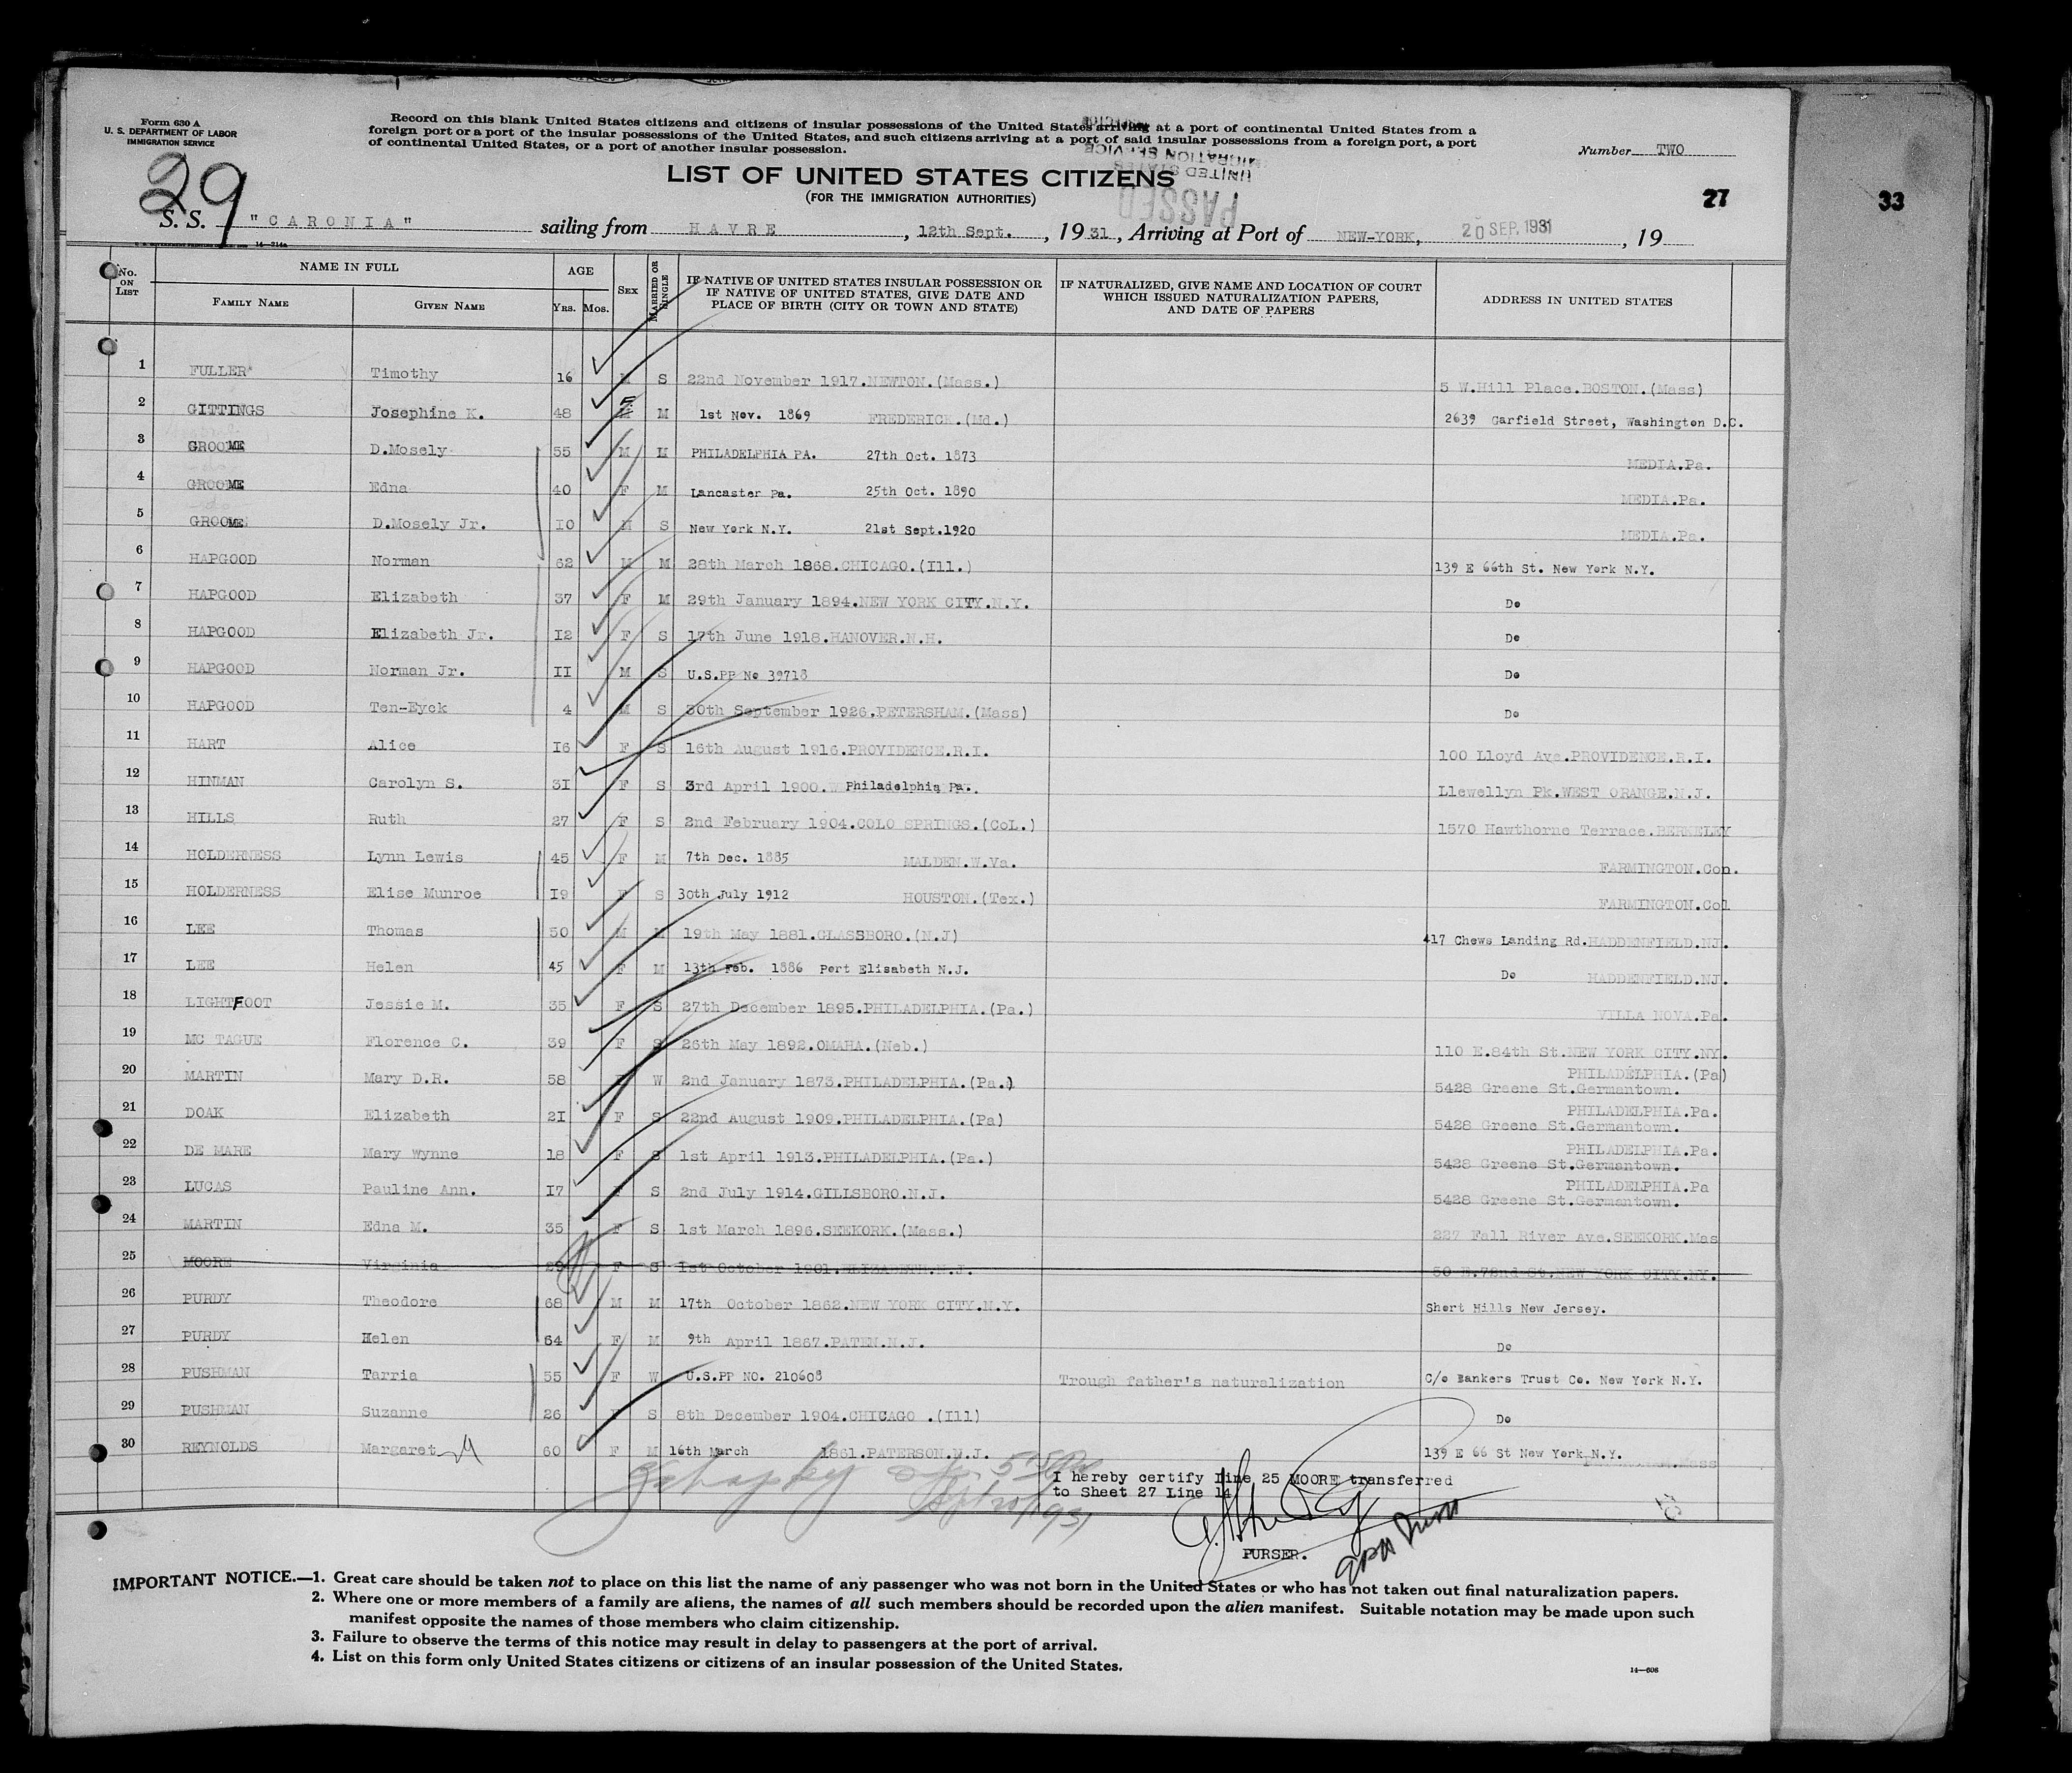 Form 630 A
U. S. DEPARTMENT OF LABOR
IMMIGRATION SERVICE
Record on this blank United States citizens and citizens of insular possessions of the United States arriving at a port of continental United States from a
foreign port or a port of the insular possessions of the United States, and such citizens arriving at a port of said insular possessions from a foreign port, a port
of continental United States, or a port of another insular possession.
Number TWO
PASSED
UNITED STATES
IMMIGRATION SERVICE
29
LIST OF UNITED STATES CITIZENS
(FOR THE IMMIGRATION AUTHORITIES)
27
33
S. S. "CARONIA" sailing from HAVRE, 12th Sept., 1931, Arriving at Port of NEW-YORK, 20 SEP. 1931, 19
No. ON LIST
NAME IN FULL
FAMILY NAME GIVEN NAME
AGE
YRS. MOS.
SEX
MARRIED OR SINGLE
IF NATIVE OF UNITED STATES INSULAR POSSESSION OR
IF NATIVE OF UNITED STATES, GIVE DATE AND
PLACE OF BIRTH (CITY OR TOWN AND STATE)
IF NATURALIZED, GIVE NAME AND LOCATION OF COURT
WHICH ISSUED NATURALIZATION PAPERS,
AND DATE OF PAPERS
ADDRESS IN UNITED STATES
1 FULLER Timothy 16 M S 22nd November 1917.NEWTON.(Mass.) 5 W.Hill Place.BOSTON.(Mass)
2 GITTINGS Josephine K. 48 F M 1st Nov. 1869 FREDERICK.(Md.) 2639 Garfield Street, Washington D.C.
3 GROOME D.Mosely 55 M M PHILADELPHIA PA. 27th Oct. 1873 MEDIA.Pa.
4 GROOME Edna 40 F M Lancaster Pa. 25th Oct. 1890 MEDIA.Pa.
5 GROOME D.Mosely Jr. 10 M S New York N.Y. 21st Sept.1920 MEDIA.Pa.
6 HAPGOOD Norman 62 M M 28th March 1868.CHICAGO.(Ill.) 139 E 66th St. New York N.Y.
7 HAPGOOD Elizabeth 37 F M 29th January 1894.NEW YORK CITY.N.Y. Do
8 HAPGOOD Elizabeth Jr. 12 F S 17th June 1918.HANOVER.N.H. Do
9 HAPGOOD Norman Jr. 11 M S U.S.PP No 39718 Do
10 HAPGOOD Ten-Eyck 4 M S 30th September 1926.PETERSHAM.(Mass) Do
11 HART Alice 16 F S 16th August 1916.PROVIDENCE.R.I. 100 Lloyd Ave.PROVIDENCE.R.I.
12 HINMAN Carolyn S. 31 F S 3rd April 1900. Philadelphia Pa. Llewellyn Pk.WEST ORANGE.N.J.
13 HILLS Ruth 27 F S 2nd February 1904.COLO SPRINGS.(CoL.) 1570 Hawthorne Terrace.BERKELEY
14 HOLDERNESS Lynn Lewis 45 F M 7th Dec. 1885 MALDEN.W.Va. FARMINGTON.Con.
15 HOLDERNESS Elise Munroe 19 F S 30th July 1912 HOUSTON.(Tex.) FARMINGTON.Col
16 LEE Thomas 50 M M 19th May 1881.GLASSBORO.(N.J) 417 Chews Landing Rd.HADDENFIELD.NJ.
17 LEE Helen 45 F M 13th Feb. 1886 Port Elisabeth N.J. Do HADDENFIELD.NJ.
18 LIGHTFOOT Jessie M. 35 F S 27th December 1895.PHILADELPHIA.(Pa.) VILLA NOVA.Pa.
19 MC TAGUE Florence C. 39 F S 26th May 1892.OMAHA.(Neb.) 110 E.84th St.NEW YORK CITY.NY.
20 MARTIN Mary D.R. 58 F W 2nd January 1873.PHILADELPHIA.(Pa.) PHILADELPHIA.(Pa)
5428 Greene St.Germantown.
21 DOAK Elizabeth 21 F S 22nd August 1909.PHILADELPHIA.(Pa) PHILADELPHIA.Pa.
5428 Greene St.Germantown.
22 DE MARE Mary Wynne 18 F S 1st April 1913.PHILADELPHIA.(Pa.) PHILADELPHIA.Pa.
5428 Greene St.Germantown.
23 LUCAS Pauline Ann. 17 F S 2nd July 1914.GILLSBORO.N.J. PHILADELPHIA.Pa
5428 Greene St.Germantown.
24 MARTIN Edna M. 35 F S 1st March 1896.SEEKORK.(Mass.) 227 Fall River Ave.SEEKORK.Mas
25 MOORE Virginia 29 F S 1st October 1901.ELIZABETH.N.J. 50 E.72nd St.NEW YORK CITY.NY.
26 PURDY Theodore 68 M M 17th October 1862.NEW YORK CITY.N.Y. Short Hills New Jersey.
27 PURDY Helen 64 F M 9th April 1867.PATEN.N.J. Do
28 PUSHMAN Tarria 55 F W U.S.PP NO. 210608 Trough father's naturalization C/o Bankers Trust Co. New York N.Y.
29 PUSHMAN Suzanne 26 F S 8th December 1904.CHICAGO .(Ill) Do
30 REYNOLDS Margaret 60 F M 16th March 1861.PATERSON.N.J. 139 E 66 St New York N.Y.
I hereby certify Line 25 MOORE transferred
to Sheet 27 Line 14
Sept 20/1931
PURSER.
IMPORTANT NOTICE.—1. Great care should be taken not to place on this list the name of any passenger who was not born in the United States or who has not taken out final naturalization papers.
2. Where one or more members of a family are aliens, the names of all such members should be recorded upon the alien manifest. Suitable notation may be made upon such
manifest opposite the names of those members who claim citizenship.
3. Failure to observe the terms of this notice may result in delay to passengers at the port of arrival.
4. List on this form only United States citizens or citizens of an insular possession of the United States.
14—608